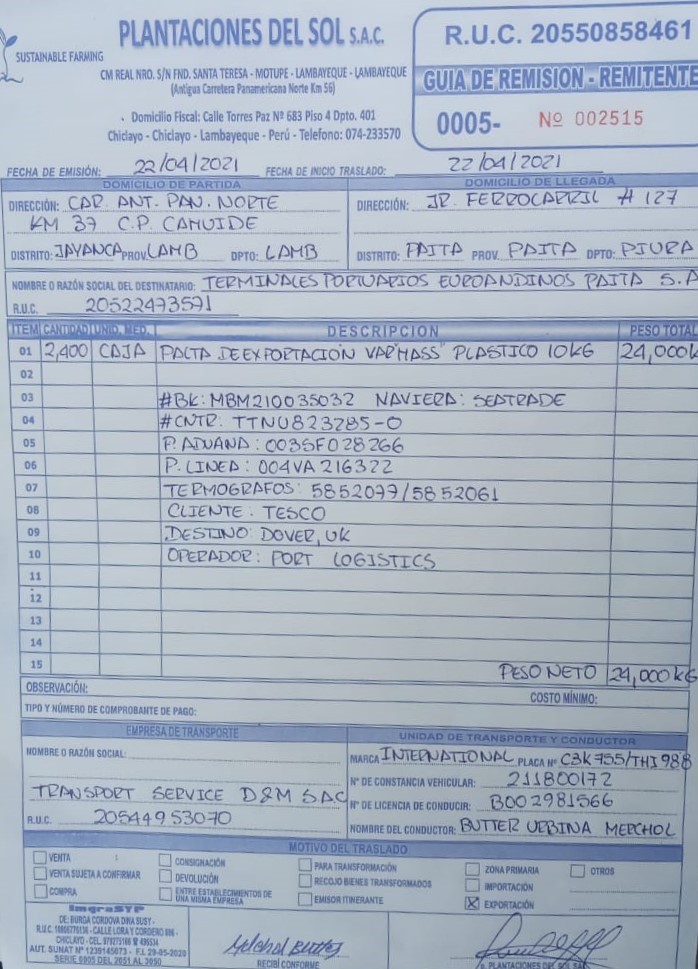 SUSTAINABLE FARMING
PLANTACIONES DEL SOL S.A.C.
CM REAL NRO. S/N FND. SANTA TERESA - MOTUPE - LAMBAYEQUE - LAMBAYEQUE
(Antigua Carretera Panamericana Norte Km 56)
• Domicilio Fiscal: Calle Torres Paz Nº 683 Piso 4 Dpto. 401
Chiclayo - Chiclayo - Lambayeque - Perú - Telefono: 074-233570
R.U.C. 20550858461
GUIA DE REMISION - REMITENTE
0005- Nº 002515
FECHA DE EMISIÓN: 22/04/2021 FECHA DE INICIO TRASLADO: 22/04/2021
DOMICILIO DE PARTIDA
DIRECCIÓN: CAR. ANT. PAN. NORTE
KM 37 C.P. CAHUIDE
DISTRITO: JAYANCA PROV. LAMB DPTO: LAMB
DOMICILIO DE LLEGADA
DIRECCIÓN: JR. FERROCARRIL # 127
DISTRITO: PAITA PROV. PAITA DPTO: PIURA
NOMBRE O RAZÓN SOCIAL DEL DESTINATARIO: TERMINALES PORTUARIOS EUROANDINOS PAITA S.A
R.U.C. 20522473571
ITEM CANTIDAD UNID. MED. DESCRIPCION PESO TOTAL
01 2,400 CAJA PALTA DE EXPORTACIÓN VAR"HASS" PLASTICO 10KG 24,000K
02
03 #BK: MBM210035032 NAVIERA: SEATRADE
04 #CNTR: TTNU823785-0
05 P. ADUANA: 0035F028266
06 P. LINEA: 004VA216322
07 TERMOGRAFOS: 5852077/5852061
08 CLIENTE: TESCO
09 DESTINO: DOVER, UK
10 OPERADOR: PORT LOGISTICS
11
12
13
14
15 PESO NETO 24,000KG
OBSERVACIÓN:
COSTO MÍNIMO:
TIPO Y NÚMERO DE COMPROBANTE DE PAGO:
EMPRESA DE TRANSPORTE
NOMBRE O RAZÓN SOCIAL:
TRANSPORT SERVICE D&M SAC
R.U.C. 20544953070
UNIDAD DE TRANSPORTE Y CONDUCTOR
MARCA INTERNATIONAL PLACA Nº C3K755/THI988
Nº DE CONSTANCIA VEHICULAR: 211800172
Nº DE LICENCIA DE CONDUCIR: B002981566
NOMBRE DEL CONDUCTOR: BUTTER URBINA MERCHOL
MOTIVO DEL TRASLADO
VENTA CONSIGNACIÓN PARA TRANSFORMACIÓN ZONA PRIMARIA OTROS
VENTA SUJETA A CONFIRMAR DEVOLUCIÓN RECOJO BIENES TRANSFORMADOS IMPORTACIÓN
COMPRA ENTRE ESTABLECIMIENTOS DE UNA MISMA EMPRESA EMISOR ITINERANTE EXPORTACIÓN
ImgraSYP
DE: BURGA CORDOVA DIKA SUSY -
CALLE LORA Y CORDERO
AUT. SUNAT Nº 1239145073 - F.I. 29-05-2020
SERIE 0005 DEL 2051 AL 3050
RECIBÍ CONFORME
p. PLANTACIONES DEL SOL SAC